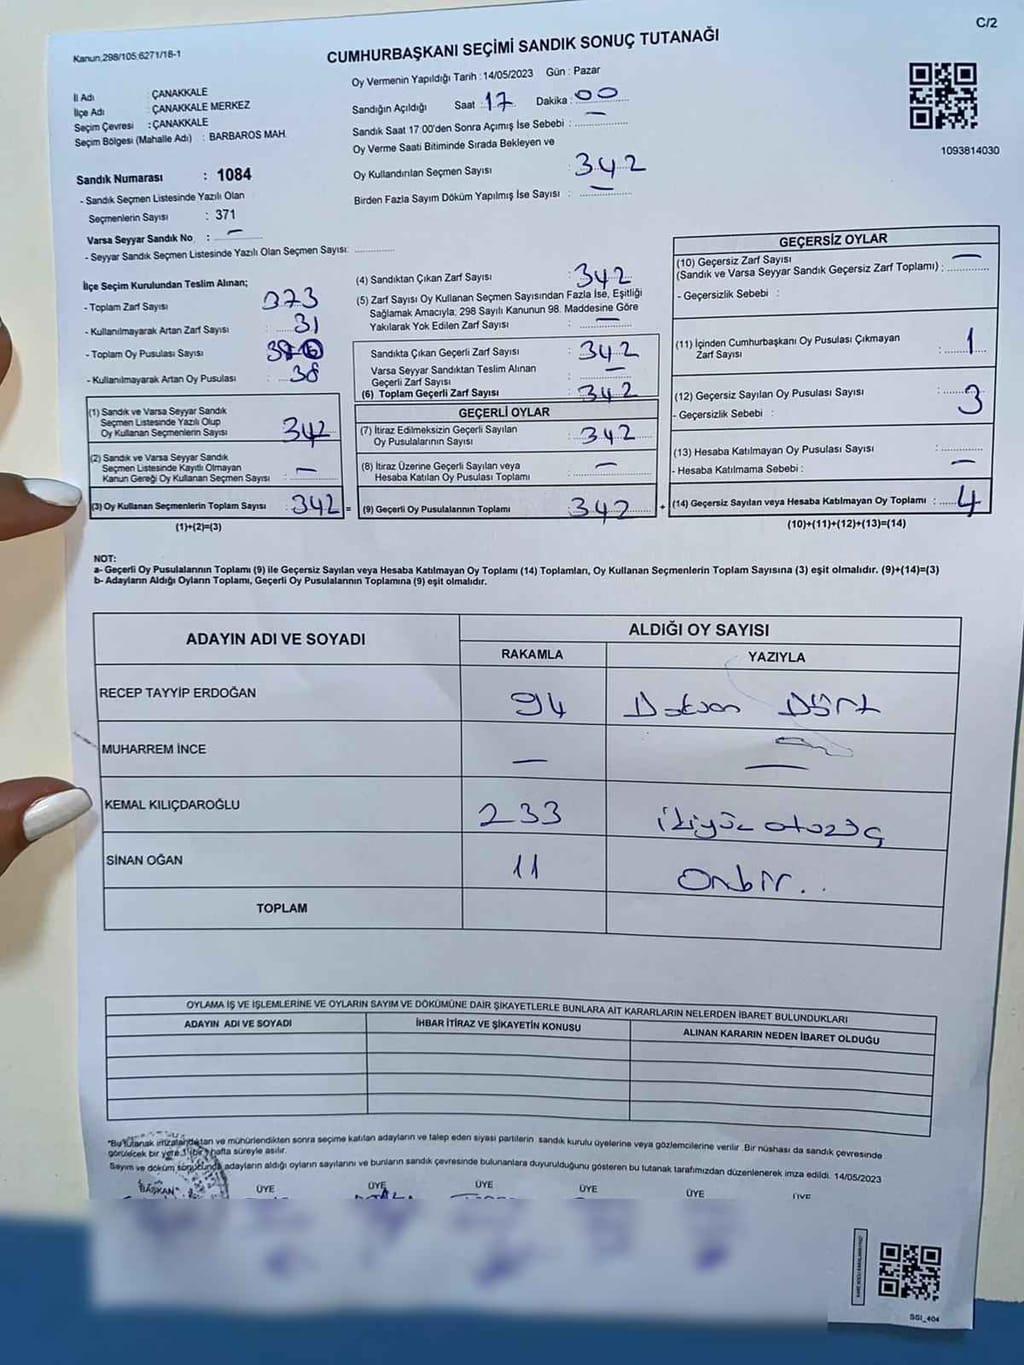 Kanun;298/105;6271/18-1
C/2
CUMHURBAŞKANI SEÇİMİ SANDIK SONUÇ TUTANAĞI
İl Adı : ÇANAKKALE
İlçe Adı : ÇANAKKALE MERKEZ
Seçim Çevresi : ÇANAKKALE
Seçim Bölgesi (Mahalle Adı) : BARBAROS MAH.
Oy Vermenin Yapıldığı Tarih : 14/05/2023 Gün : Pazar
Sandığın Açıldığı Saat : 17 Dakika : 00
Sandık Saat 17:00'den Sonra Açımış İse Sebebi : —
Oy Verme Saati Bitiminde Sırada Bekleyen ve
Oy Kullandırılan Seçmen Sayısı : 342
Birden Fazla Sayım Döküm Yapılmış İse Sayısı : —
1093814030
Sandık Numarası : 1084
- Sandık Seçmen Listesinde Yazılı Olan
Seçmenlerin Sayısı : 371
Varsa Seyyar Sandık No : —
- Seyyar Sandık Seçmen Listesinde Yazılı Olan Seçmen Sayısı:
İlçe Seçim Kurulundan Teslim Alınan;
- Toplam Zarf Sayısı : 373
- Kullanılmayarak Artan Zarf Sayısı : 31
- Toplam Oy Pusulası Sayısı :
- Kullanılmayarak Artan Oy Pusulası : 38
(1) Sandık ve Varsa Seyyar Sandık
Seçmen Listesinde Yazılı Olup
Oy Kullanan Seçmenlerin Sayısı : 342
(2) Sandık ve Varsa Seyyar Sandık
Seçmen Listesinde Kayıtlı Olmayan
Kanun Gereği Oy Kullanan Seçmen Sayısı : —
(3) Oy Kullanan Seçmenlerin Toplam Sayısı : 342 =
(1)+(2)=(3)
(4) Sandıktan Çıkan Zarf Sayısı : 342
(5) Zarf Sayısı Oy Kullanan Seçmen Sayısından Fazla İse, Eşitliği
Sağlamak Amacıyla; 298 Sayılı Kanunun 98. Maddesine Göre
Yakılarak Yok Edilen Zarf Sayısı : —
Sandıkta Çıkan Geçerli Zarf Sayısı : 342
Varsa Seyyar Sandıktan Teslim Alınan
Geçerli Zarf Sayısı : —
(6) Toplam Geçerli Zarf Sayısı : 342
GEÇERLİ OYLAR
(7) İtiraz Edilmeksizin Geçerli Sayılan
Oy Pusulalarının Sayısı : 342
(8) İtiraz Üzerine Geçerli Sayılan veya
Hesaba Katılan Oy Pusulası Toplamı : —
(9) Geçerli Oy Pusulalarının Toplamı : 342 +
GEÇERSİZ OYLAR
(10) Geçersiz Zarf Sayısı
(Sandık ve Varsa Seyyar Sandık Geçersiz Zarf Toplamı) : —
- Geçersizlik Sebebi :
(11) İçinden Cumhurbaşkanı Oy Pusulası Çıkmayan
Zarf Sayısı : 1
(12) Geçersiz Sayılan Oy Pusulası Sayısı : 3
- Geçersizlik Sebebi :
(13) Hesaba Katılmayan Oy Pusulası Sayısı : —
- Hesaba Katılmama Sebebi :
(14) Geçersiz Sayılan veya Hesaba Katılmayan Oy Toplamı : 4
(10)+(11)+(12)+(13)=(14)
NOT:
a- Geçerli Oy Pusulalarının Toplamı (9) ile Geçersiz Sayılan veya Hesaba Katılmayan Oy Toplamı (14) Toplamları, Oy Kullanan Seçmenlerin Toplam Sayısına (3) eşit olmalıdır. (9)+(14)=(3)
b- Adayların Aldığı Oyların Toplamı, Geçerli Oy Pusulalarının Toplamına (9) eşit olmalıdır.
ADAYIN ADI VE SOYADI
ALDIĞI OY SAYISI
RAKAMLA YAZIYLA
RECEP TAYYİP ERDOĞAN 94 Doksan Dört
MUHARREM İNCE — —
KEMAL KILIÇDAROĞLU 233 ikiyüz otuzüç
SİNAN OĞAN 11 Onbir..
TOPLAM
OYLAMA İŞ VE İŞLEMLERİNE VE OYLARIN SAYIM VE DÖKÜMÜNE DAİR ŞİKAYETLERLE BUNLARA AİT KARARLARIN NELERDEN İBARET BULUNDUKLARI
ADAYIN ADI VE SOYADI İHBAR İTİRAZ VE ŞİKAYETİN KONUSU ALINAN KARARIN NEDEN İBARET OLDUĞU
*Bu tutanak imzalandıktan ve mühürlendikten sonra seçime katılan adayların ve talep eden siyasi partilerin sandık kurulu üyelerine veya gözlemcilerine verilir. Bir nüshası da sandık çevresinde
görülecek bir yere 1 (bir) hafta süreyle asılır.
Sayım ve döküm sonucunda adayların aldığı oyların sayılarını ve bunların sandık çevresinde bulunanlara duyurulduğunu gösteren bu tutanak tarafımızdan düzenlenerek imza edildi. 14/05/2023
BAŞKAN ÜYE ÜYE ÜYE ÜYE ÜYE ÜYE
SSI_404